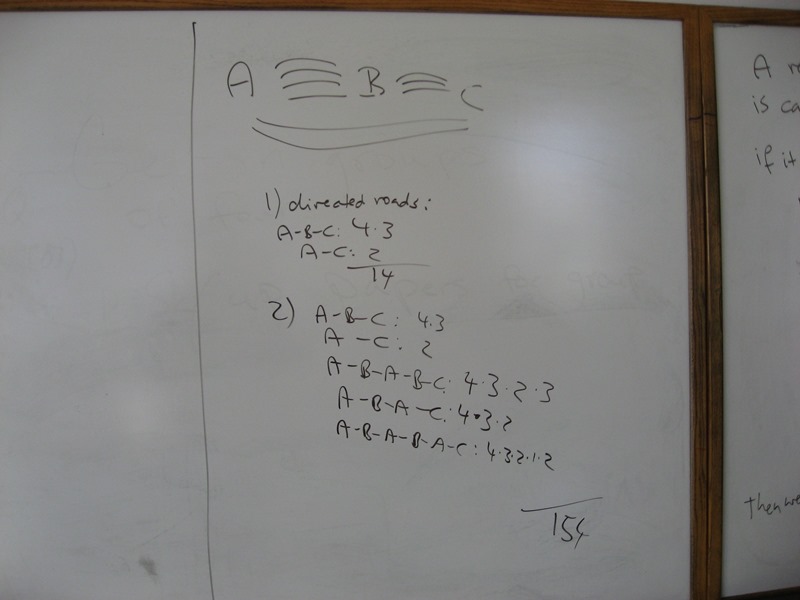 A B C
1) directed roads:
A-B-C: 4·3
A-C: 2
14
2) A-B-C: 4·3
A-C: 2
A-B-A-B-C: 4·3·2·3
A-B-A-C: 4·3·2
A-B-A-B-A-C: 4·3·2·1·2
154
A
is ca
if it
then we